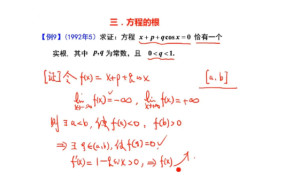 三．方程的根
【例9】(1992年5) 求证：方程 x + p + q cos x = 0 恰有一个
实根. 其中 p, q 为常数，且 0 < q < 1.
[证] 令 f(x) = x + p + q cos x [a, b]
lim f(x) = -∞, lim f(x) = +∞
x→-∞ x→+∞
则 ∃ a < b, 使 f(a) < 0, f(b) > 0
⇒ ∃ ξ ∈ (a, b), 使 f(ξ) = 0
f'(x) = 1 - q sin x > 0, ⇒ f(x) ↗